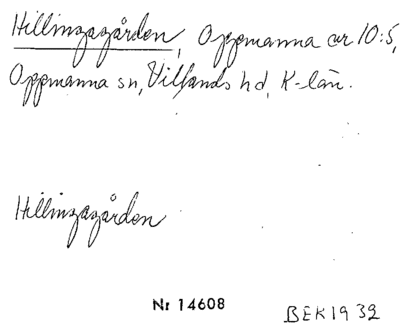 Hillingagården, Oppmanna ar 10:5,
Oppmanna sn, Villands hd, K-län.
Hillingagården
Nr 14608
BEK 1932